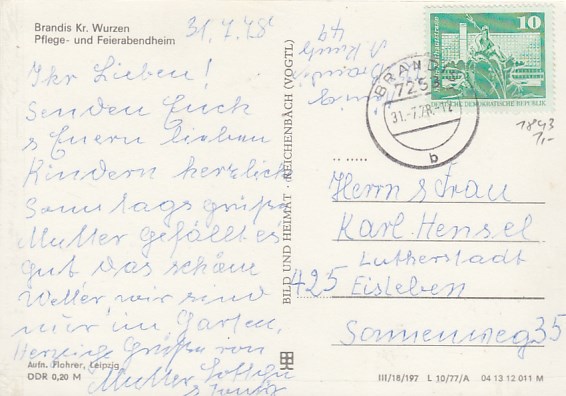 Brandis Kr. Wurzen
Pflege- und Feierabendheim
31.7.78
Ihr Lieben!
Senden Euch
& Euern lieben
Kindern herzliche
Sonntagsgrüße
Mutter gefällt es
gut das schöne
Wetter wir sind
nur im Garten,
Herzige Grüße von
Mutter,
Aufn. Flohrer, Leipzig
DDR 0,20 M
BILD UND HEIMAT · REICHENBACH (VOGTL)
A 
BRANDIS
725
31.-7.78.-12
b
10
DEUTSCHE DEMOKRATISCHE REPUBLIK
1843
1,-
Herrn & Frau
Karl Hensel
Lutherstadt
425 Eisleben
Sonnenweg 35
III/18/197 L 10/77/A 04 13 12 011 M